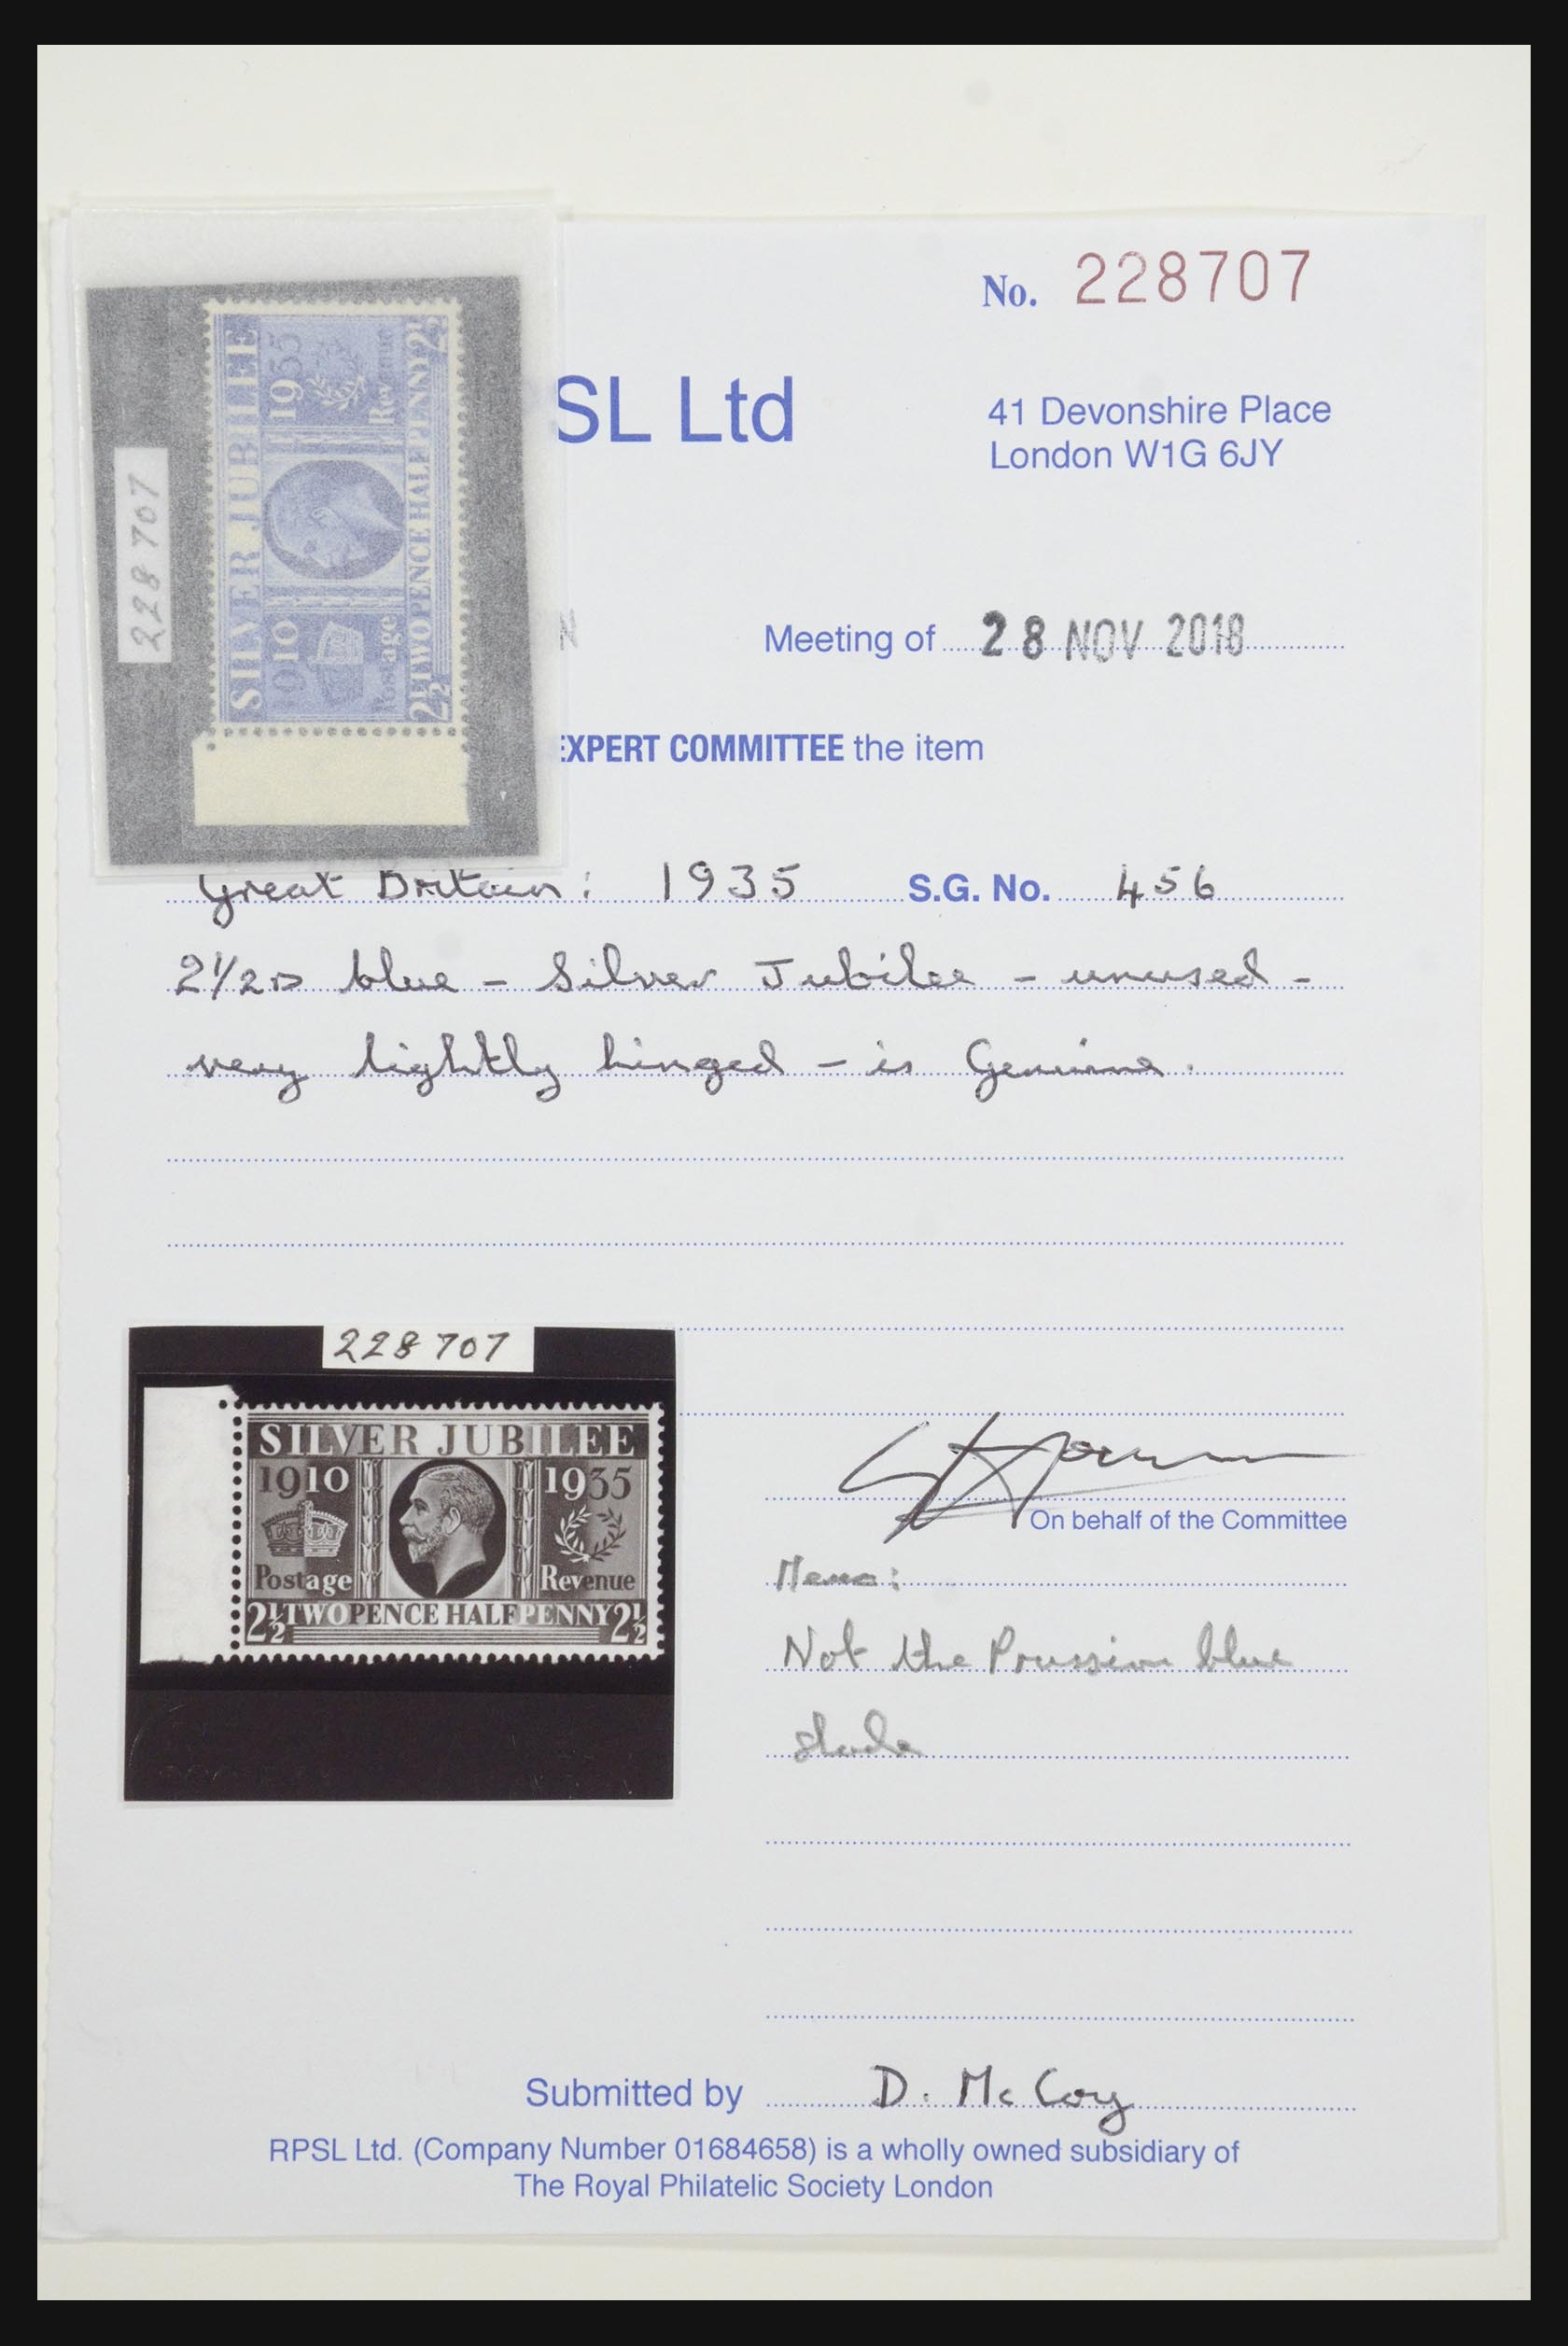 No. 228707
SL Ltd
41 Devonshire Place
London W1G 6JY
SILVER JUBILEE
1910 1935
Postage Revenue
2½ TWOPENCE HALFPENNY 2½
228707
Meeting of 28 NOV 2018
EXPERT COMMITTEE the item
Great Britain: 1935 S.G. No. 456
2 1/2D blue - Silver Jubilee - unused -
very lightly hinged - is Genuine.
228707
SILVER JUBILEE
1910 1935
Postage Revenue
2½ TWOPENCE HALFPENNY 2½
On behalf of the Committee
Memo:
Not the Prussian blue
shade
Submitted by D. McCoy
RPSL Ltd. (Company Number 01684658) is a wholly owned subsidiary of
The Royal Philatelic Society London